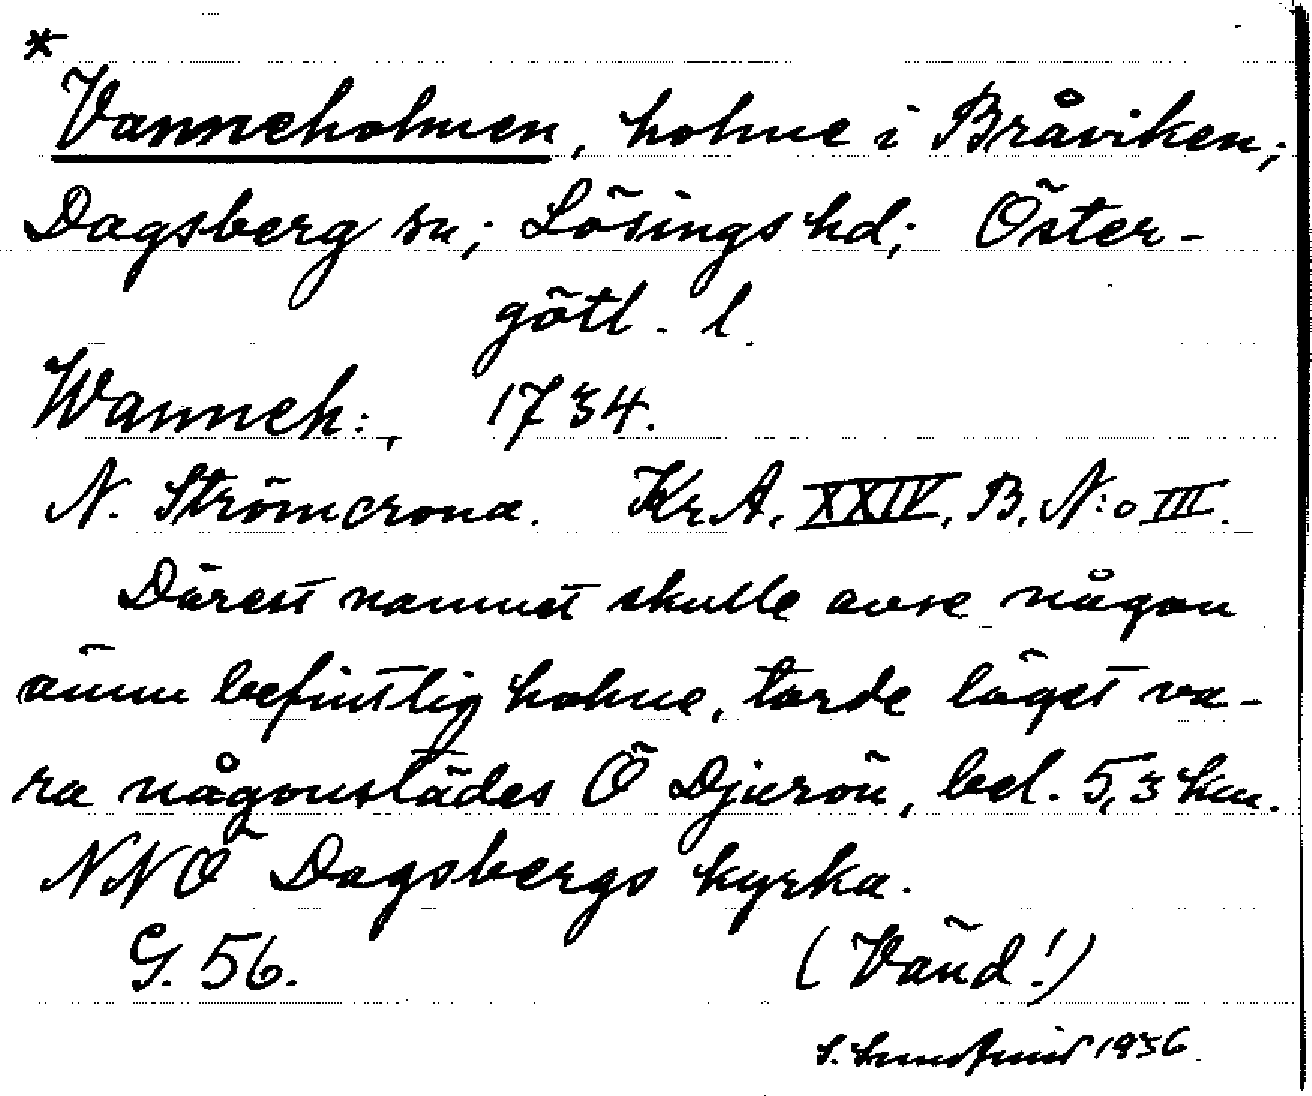 *
Vanneholmen, holme i Bråviken;
Dagsberg sn; Lösings hd; Öster-
götl. l.
Wanneh:, 1734.
N. Strömcrona. Kr.A. XXIV, B. N:o III.
Därest namnet skulle avse någon
ännu befintlig holme, torde läget va-
ra någonstädes Ö Djurön, bel. 5,3 km.
NNÖ Dagsbergs kyrka.
G. 56. (Vänd!)
1936.